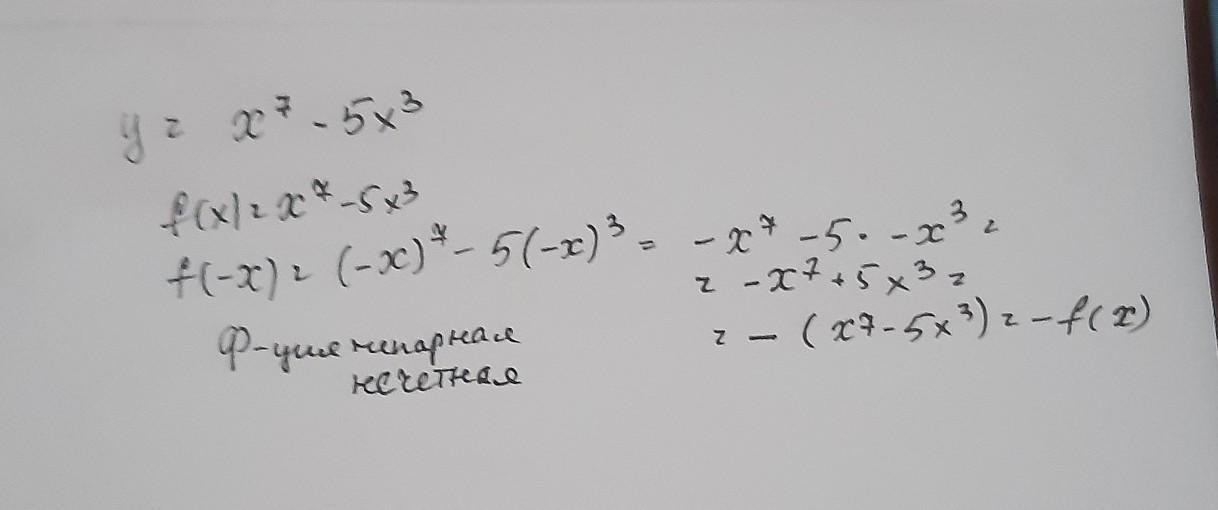 y = x⁷ - 5x³
f(x) = x⁷ - 5x³
f(-x) = (-x)⁷ - 5(-x)³ = - x⁷ - 5 · - x³ =
= - x⁷ + 5x³ =
= - (x⁷ - 5x³) = - f(x)
Ф-ция непарная
нечетная